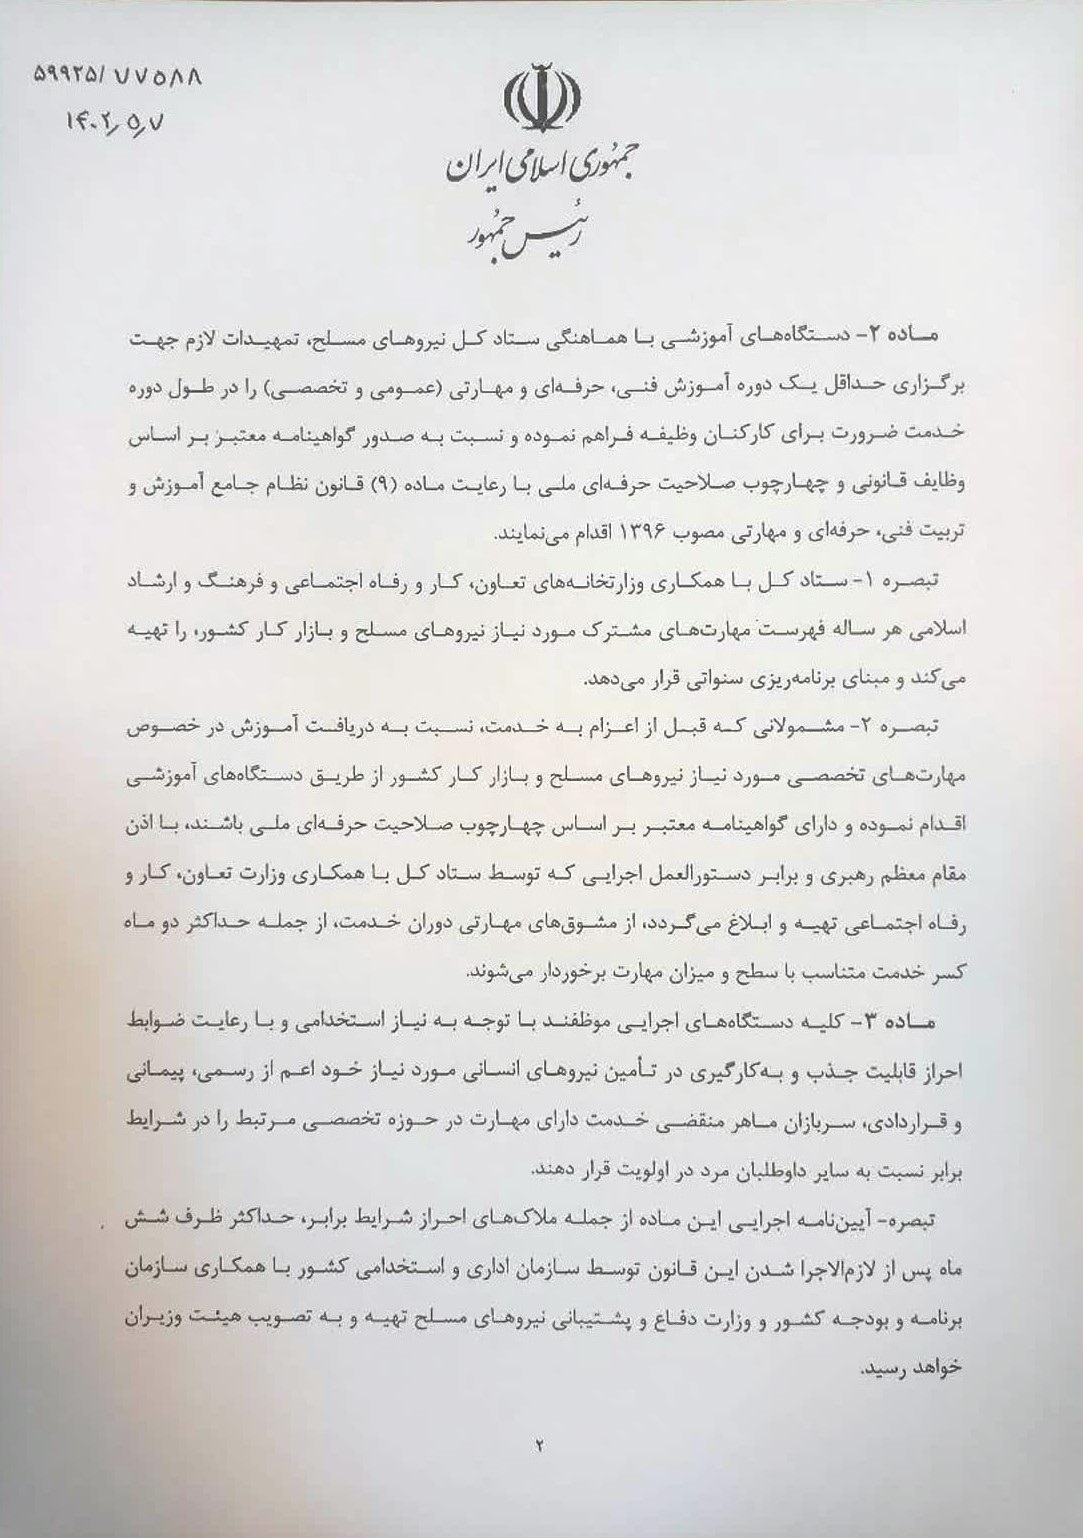 ۵۹۹۲۵/۷۷۵۸۸
۱۴۰۲٫۵٫۷
جمهوری اسلامی ایران
رئیس جمهور
ماده ۲- دستگاه‌های آموزشی با هماهنگی ستاد کل نیروهای مسلح، تمهیدات لازم جهت
برگزاری حداقل یک دوره آموزش فنی، حرفه‌ای و مهارتی (عمومی و تخصصی) را در طول دوره
خدمت ضرورت برای کارکنان وظیفه فراهم نموده و نسبت به صدور گواهینامه معتبر بر اساس
وظایف قانونی و چهارچوب صلاحیت حرفه‌ای ملی با رعایت ماده (۹) قانون نظام جامع آموزش و
تربیت فنی، حرفه‌ای و مهارتی مصوب ۱۳۹۶ اقدام می‌نمایند.
تبصره ۱- ستاد کل با همکاری وزارتخانه‌های تعاون، کار و رفاه اجتماعی و فرهنگ و ارشاد
اسلامی هر ساله فهرست مهارت‌های مشترک مورد نیاز نیروهای مسلح و بازار کار کشور، را تهیه
می‌کند و مبنای برنامه‌ریزی سنواتی قرار می‌دهد.
تبصره ۲- مشمولانی که قبل از اعزام به خدمت، نسبت به دریافت آموزش در خصوص
مهارت‌های تخصصی مورد نیاز نیروهای مسلح و بازار کار کشور از طریق دستگاه‌های آموزشی
اقدام نموده و دارای گواهینامه معتبر بر اساس چهارچوب صلاحیت حرفه‌ای ملی باشند، با اذن
مقام معظم رهبری و برابر دستورالعمل اجرایی که توسط ستاد کل با همکاری وزارت تعاون، کار و
رفاه اجتماعی تهیه و ابلاغ می‌گردد، از مشوق‌های مهارتی دوران خدمت، از جمله حداکثر دو ماه
کسر خدمت متناسب با سطح و میزان مهارت برخوردار می‌شوند.
ماده ۳- کلیه دستگاه‌های اجرایی موظفند با توجه به نیاز استخدامی و با رعایت ضوابط
احراز قابلیت جذب و به‌کارگیری در تأمین نیروهای انسانی مورد نیاز خود اعم از رسمی، پیمانی
و قراردادی، سربازان ماهر منقضی خدمت دارای مهارت در حوزه تخصصی مرتبط را در شرایط
برابر نسبت به سایر داوطلبان مرد در اولویت قرار دهند.
تبصره- آیین‌نامه اجرایی این ماده از جمله ملاک‌های احراز شرایط برابر، حداکثر ظرف شش
ماه پس از لازم‌الاجرا شدن این قانون توسط سازمان اداری و استخدامی کشور با همکاری سازمان
برنامه و بودجه کشور و وزارت دفاع و پشتیبانی نیروهای مسلح تهیه و به تصویب هیئت وزیران
خواهد رسید.
۲